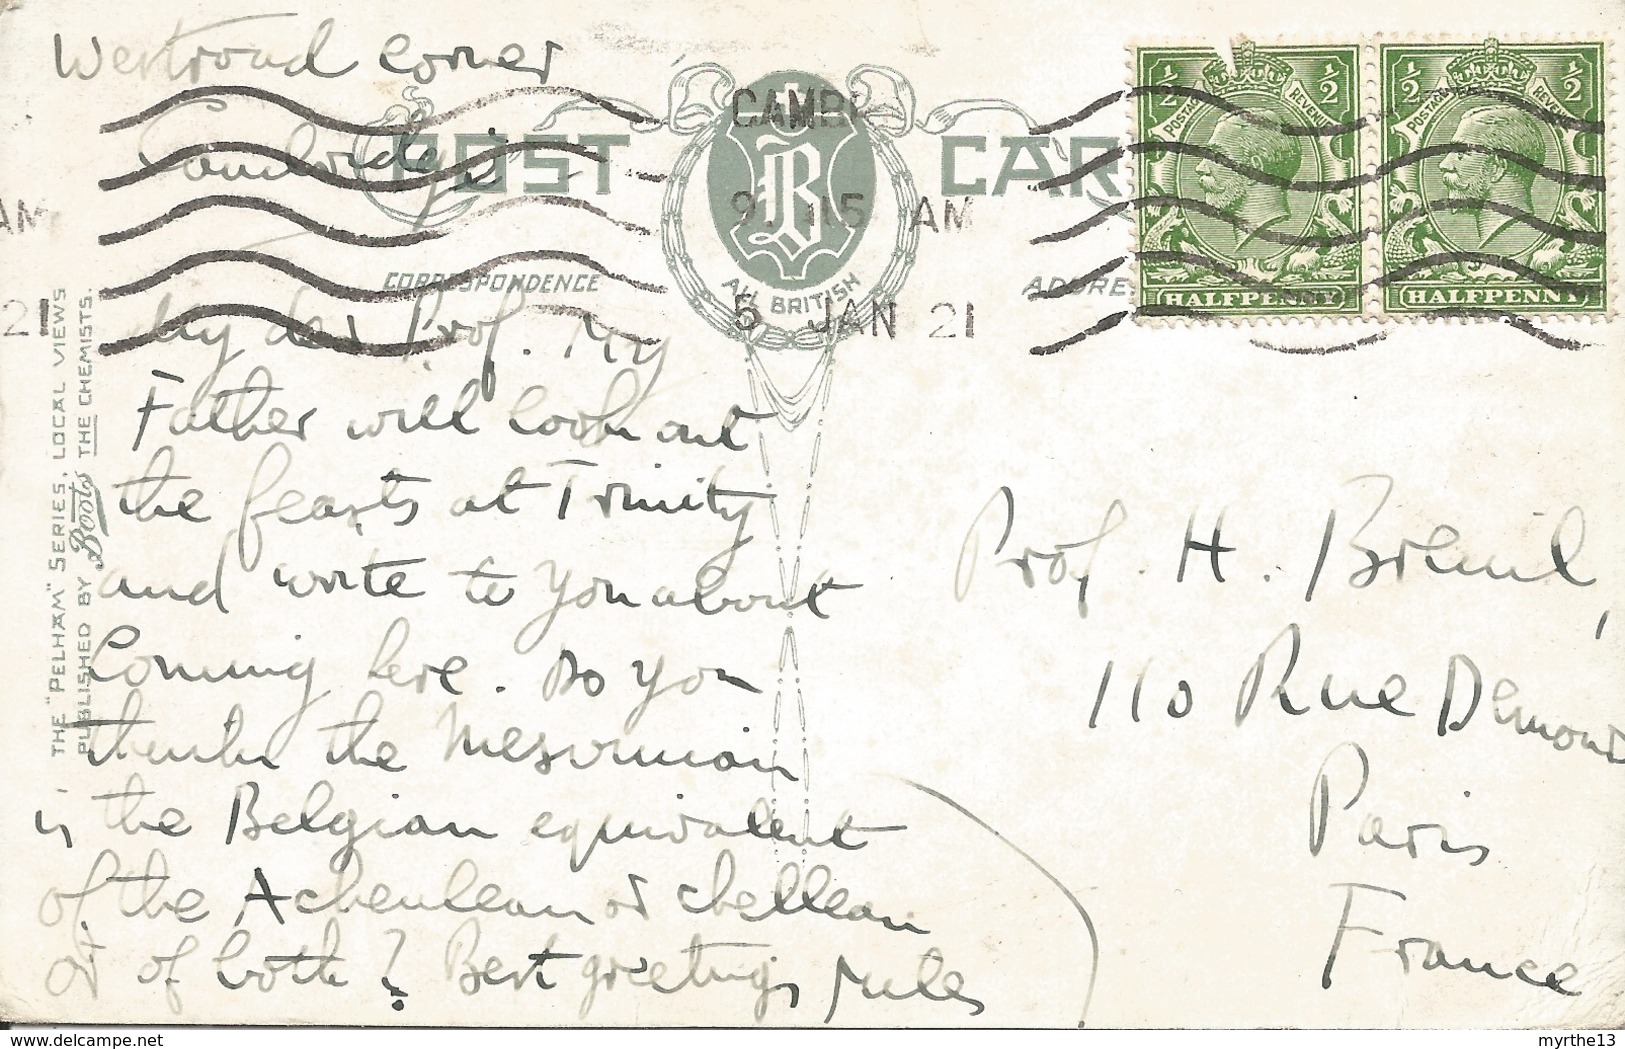 Westroad Corner
Cambridge
POST CAR
CAMBR
9 15 AM
5 JAN 21
AM
21
B
ALL BRITISH
CORRESPONDENCE
ADDRE
½ ½
POSTAGE REVENUE
HALFPENNY
½ ½
POSTAGE REVENUE
HALFPENNY
THE "PELHAM" SERIES, LOCAL VIEWS
PUBLISHED BY Boots THE CHEMISTS.
My dear Prof. My
Father will look out
the feasts at Trinity
and write to you about
Coming here. Do you
think the Mesvinian
is the Belgian equivalent
of the Acheulean or chellean
or of both? Best greetings Jules
Prof. H. Breuil,
110 Rue Demours
Paris
France
myrthe13